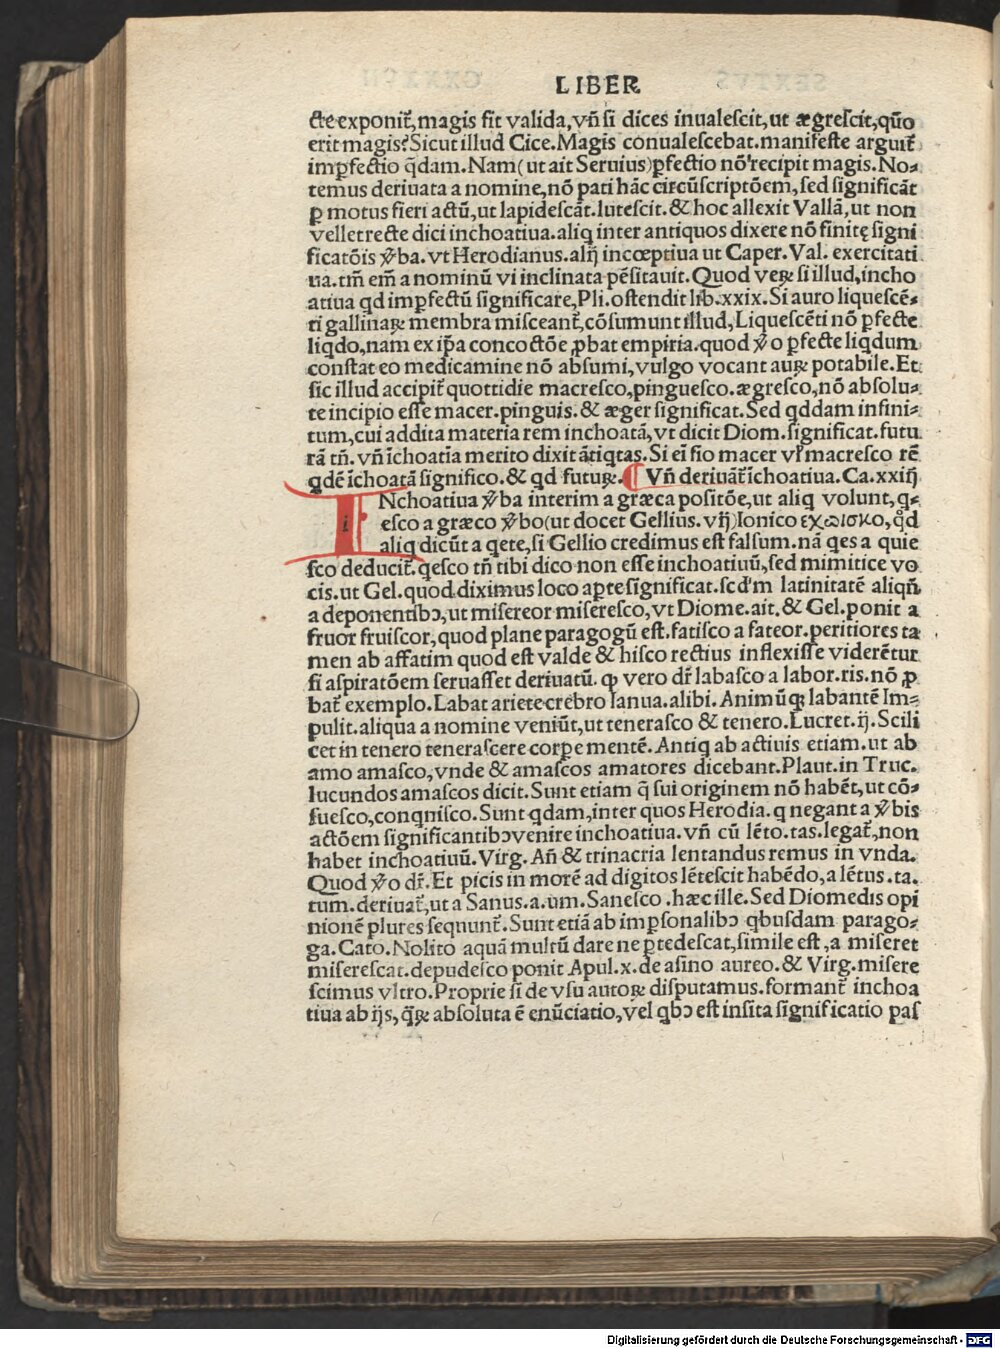 LIBER
cte exponit᷑, magis fit valida, vñ si dices inualescit, ut ægrescit, quō
erit magis? Sicut illud Cice. Magis conualescebat. manifeste arguit᷑
imꝑfectio q̄dam. Nam (ut ait Seruius) ꝑfectio nō recipit magis. No-
temus deriuata a nomine, nō pati hāc circūscriptōem, sed significāt
ꝑ motus fieri actū, ut lapidescāt. lutescit. & hoc allexit Vallā, ut non
velletrecte dici inchoatiua. aliq inter antiquos dixere nō finitę signi
ficatōis v̄ba. vt Herodianus. alij incœptiua ut Caper. Val. exercitati
ua. tm̄ em̄ a nominū vi inclinata pēsitauit. Quod veꝝ si illud, incho
atiua qd imꝑfectū significare, Pli. ostendit lib. xxix. Si auro liquescē-
ti gallinaꝝ membra misceant᷑, cōsumunt illud, Liquescēti nō ꝑfecte
liqdo, nam ex ip̄a concoctōe ꝓbat empiria. quod v̄o ꝑfecte liqdum
constat eo medicamine nō absumi, vulgo vocant auꝝ potabile. Et
sic illud accipit᷑ quottidie macresco, pinguesco. ægresco, nō absolu-
te incipio esse macer. pinguis. & æger significat. Sed qddam infini-
tum, cui addita materia rem inchoatā, vt dicit Diom. significat. futu
rā tñ. vñ īchoatīa merito dixit ātiqtas. Si eī fio macer vl' macresco rē
qdē īchoatā significo. & qd futuꝝ. ¶ Vñ deriuāt᷑ īchoatiua. Ca. xxiij
INchoatiua v̄ba interim a græca positōe, ut aliq volunt, q-
esco a græco v̄bo (ut docet Gellius. vij) Ionico εχωισκο, qd
aliq dicūt a qete, si Gellio credimus est falsum. nā qes a quie
sco deducit᷑. qesco tñ tibi dico non esse inchoatiuū, sed mimitice vo
cis. ut Gel. quod diximus loco aꝑte significat. scd'm latinitatē aliqñ
a deponentibꝰ, ut misereor miseresco, vt Diome. ait. & Gel. ponit a
fruor fruiscor, quod plane paragogū est. fatisco a fateor. peritiores ta
men ab affatim quod est valde & hisco rectius inflexisse viderētur
si aspiratōem seruasset deriuatū. qꝫ vero dr̄ labasco a labor. ris. nō ꝓ
bat᷑ exemplo. Labat ariete crebro Ianua. alibi. Animūqꝫ labantē Im-
pulit. aliqua a nomine veniūt, ut tenerasco & tenero. Lucret. ij. Scili
cet in tenero tenerascere corꝑe mentē. Antiq ab actiuis etiam. ut ab
amo amasco, vnde & amascos amatores dicebant. Plaut. in Truc.
Iucundos amascos dicit. Sunt etiam q sui originem nō habēt, ut cō-
suesco, conqnisco. Sunt qdam, inter quos Herodia. q negant a v̄bis
actōem significantibꝰ venire inchoatiua. vñ cū lēto. tas. legat᷑, non
habet inchoatiuū. Virg. Añ & trinacria lentandus remus in vnda.
Quod v̄o dr̄. Et picis in morē ad digitos lētescit habēdo, a lētus. ta.
tum. deriuat᷑, ut a Sanus. a. um. Sanesco. hæc ille. Sed Diomedis opi
nionē plures sequunt᷑. Sunt etiā ab imꝑsonalibꝰ qbusdam parago-
ga. Cato. Nolito aquā multū dare ne ꝑtedescat, simile est, a miseret
miserescat. depudesco ponit Apul. x. de asino aureo. & Virg. misere
scimus vltro. Proprie si de vsu autoꝝ disputamus. formant᷑ inchoa
tiua ab ijs, q̄ꝝ absoluta ē enūciatio, vel qbꝰ est insita significatio pas
Digitalisierung gefördert durch die Deutsche Forschungsgemeinschaft - DFG